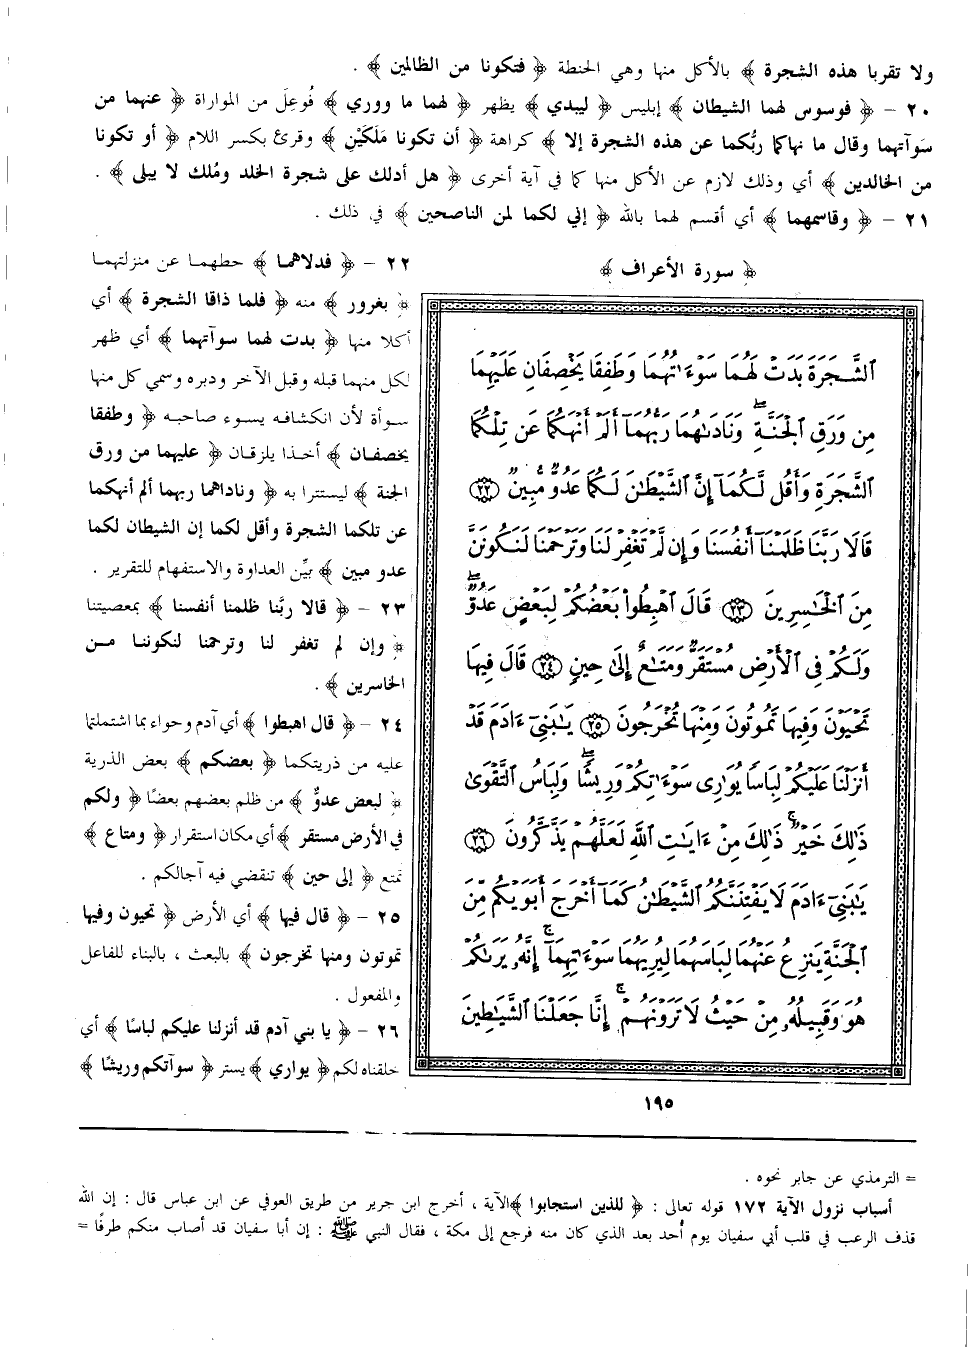 ولا تقربا هذه الشجرة ﴾ بالأكل منها وهي الحنطة ﴿ فتكونا من الظالمين ﴾ .
٢٠ – ﴿ فوسوس لهما الشيطان ﴾ إبليس ﴿ ليبدي ﴾ يظهر ﴿ لهما ما ووري ﴾ فُوعِلَ من المواراة ﴿ عنهما من
سَوآتهما وقال ما نهاكما ربُّكما عن هذه الشجرة إلا ﴾ كراهة ﴿ أن تكونا مَلَكَيْنِ ﴾ وقرئ بكسر اللام ﴿ أو تكونا
من الخالدين ﴾ أي وذلك لازم عن الأكل منها كما في آية أخرى ﴿ هل أدلك على شجرة الخلد ومُلك لا يبلى ﴾ .
٢١ – ﴿ وقاسمهما ﴾ أي أقسم لهما بالله ﴿ إني لكما لمن الناصحين ﴾ في ذلك .
﴿ سورة الأعراف ﴾
ٱلشَّجَرَةَ بَدَتْ لَهُمَا سَوْءَٰتُهُمَا وَطَفِقَا يَخْصِفَانِ عَلَيْهِمَا
مِن وَرَقِ ٱلْجَنَّةِ ۖ وَنَادَىٰهُمَا رَبُّهُمَآ أَلَمْ أَنْهَكُمَا عَن تِلْكُمَا
ٱلشَّجَرَةِ وَأَقُل لَّكُمَآ إِنَّ ٱلشَّيْطَٰنَ لَكُمَا عَدُوٌّ مُّبِينٌ ﴿٢٢﴾
قَالَا رَبَّنَا ظَلَمْنَآ أَنفُسَنَا وَإِن لَّمْ تَغْفِرْ لَنَا وَتَرْحَمْنَا لَنَكُونَنَّ
مِنَ ٱلْخَٰسِرِينَ ﴿٢٣﴾ قَالَ ٱهْبِطُوا۟ بَعْضُكُمْ لِبَعْضٍ عَدُوٌّ ۖ
وَلَكُمْ فِى ٱلْأَرْضِ مُسْتَقَرٌّ وَمَتَٰعٌ إِلَىٰ حِينٍ ﴿٢٤﴾ قَالَ فِيهَا
تَحْيَوْنَ وَفِيهَا تَمُوتُونَ وَمِنْهَا تُخْرَجُونَ ﴿٢٥﴾ يَٰبَنِىٓ ءَادَمَ قَدْ
أَنزَلْنَا عَلَيْكُمْ لِبَاسًا يُوَٰرِى سَوْءَٰتِكُمْ وَرِيشًا ۖ وَلِبَاسُ ٱلتَّقْوَىٰ
ذَٰلِكَ خَيْرٌ ۚ ذَٰلِكَ مِنْ ءَايَٰتِ ٱللَّهِ لَعَلَّهُمْ يَذَّكَّرُونَ ﴿٢٦﴾
يَٰبَنِىٓ ءَادَمَ لَا يَفْتِنَنَّكُمُ ٱلشَّيْطَٰنُ كَمَآ أَخْرَجَ أَبَوَيْكُم مِّنَ
ٱلْجَنَّةِ يَنزِعُ عَنْهُمَا لِبَاسَهُمَا لِيُرِيَهُمَا سَوْءَٰتِهِمَآ ۚ إِنَّهُۥ يَرَىٰكُمْ
هُوَ وَقَبِيلُهُۥ مِنْ حَيْثُ لَا تَرَوْنَهُمْ ۗ إِنَّا جَعَلْنَا ٱلشَّيَٰطِينَ
١٩٥
٢٢ – ﴿ فدلاهما ﴾ حطهما عن منزلتهما
﴿ بغرور ﴾ منه ﴿ فلما ذاقا الشجرة ﴾ أي
أكلا منها ﴿ بدت لهما سوآتهما ﴾ أي ظهر
لكل منهما قبله وقبل الآخر ودبره وسمي كل منها
سوأة لأن انكشافه يسوء صاحبه ﴿ وطفقا
يخصفان ﴾ أخذا يلزقان ﴿ عليهما من ورق
الجنة ﴾ ليستترا به ﴿ وناداهما ربهما ألم أنهكما
عن تلكما الشجرة وأقل لكما إن الشيطان لكما
عدو مبين ﴾ بيِّن العداوة والاستفهام للتقرير .
٢٣ – ﴿ قالا ربَّنا ظلمنا أنفسنا ﴾ بمعصيتنا
﴿ وإن لم تغفر لنا وترحمنا لنكوننا من
الخاسرين ﴾ .
٢٤ – ﴿ قال اهبطوا ﴾ أي آدم وحواء بما اشتملتما
عليه من ذريتكما ﴿ بعضكم ﴾ بعض الذرية
﴿ لبعض عدوٌّ ﴾ من ظلم بعضهم بعضًا ﴿ ولكم
في الأرض مستقر ﴾ أي مكان استقرار ﴿ ومتاع ﴾
تمتع ﴿ إلى حين ﴾ تنقضي فيه آجالكم .
٢٥ – ﴿ قال فيها ﴾ أي الأرض ﴿ تحيون وفيها
تموتون ومنها تخرجون ﴾ بالبعث ، بالبناء للفاعل
والمفعول .
٢٦ – ﴿ يا بني آدم قد أنزلنا عليكم لباسًا ﴾ أي
خلقناه لكم ﴿ يواري ﴾ يستر ﴿ سوآتكم وريشًا ﴾
= الترمذي عن جابر نحوه .
أسباب نزول الآية ١٧٢ قوله تعالى : ﴿ للذين استجابوا ﴾ الآية ، أخرج ابن جرير من طريق العوفي عن ابن عباس قال : إن الله
قذف الرعب في قلب أبي سفيان يوم أُحد بعد الذي كان منه فرجع إلى مكة ، فقال النبي ﷺ : إن أبا سفيان قد أصاب منكم طرفًا =